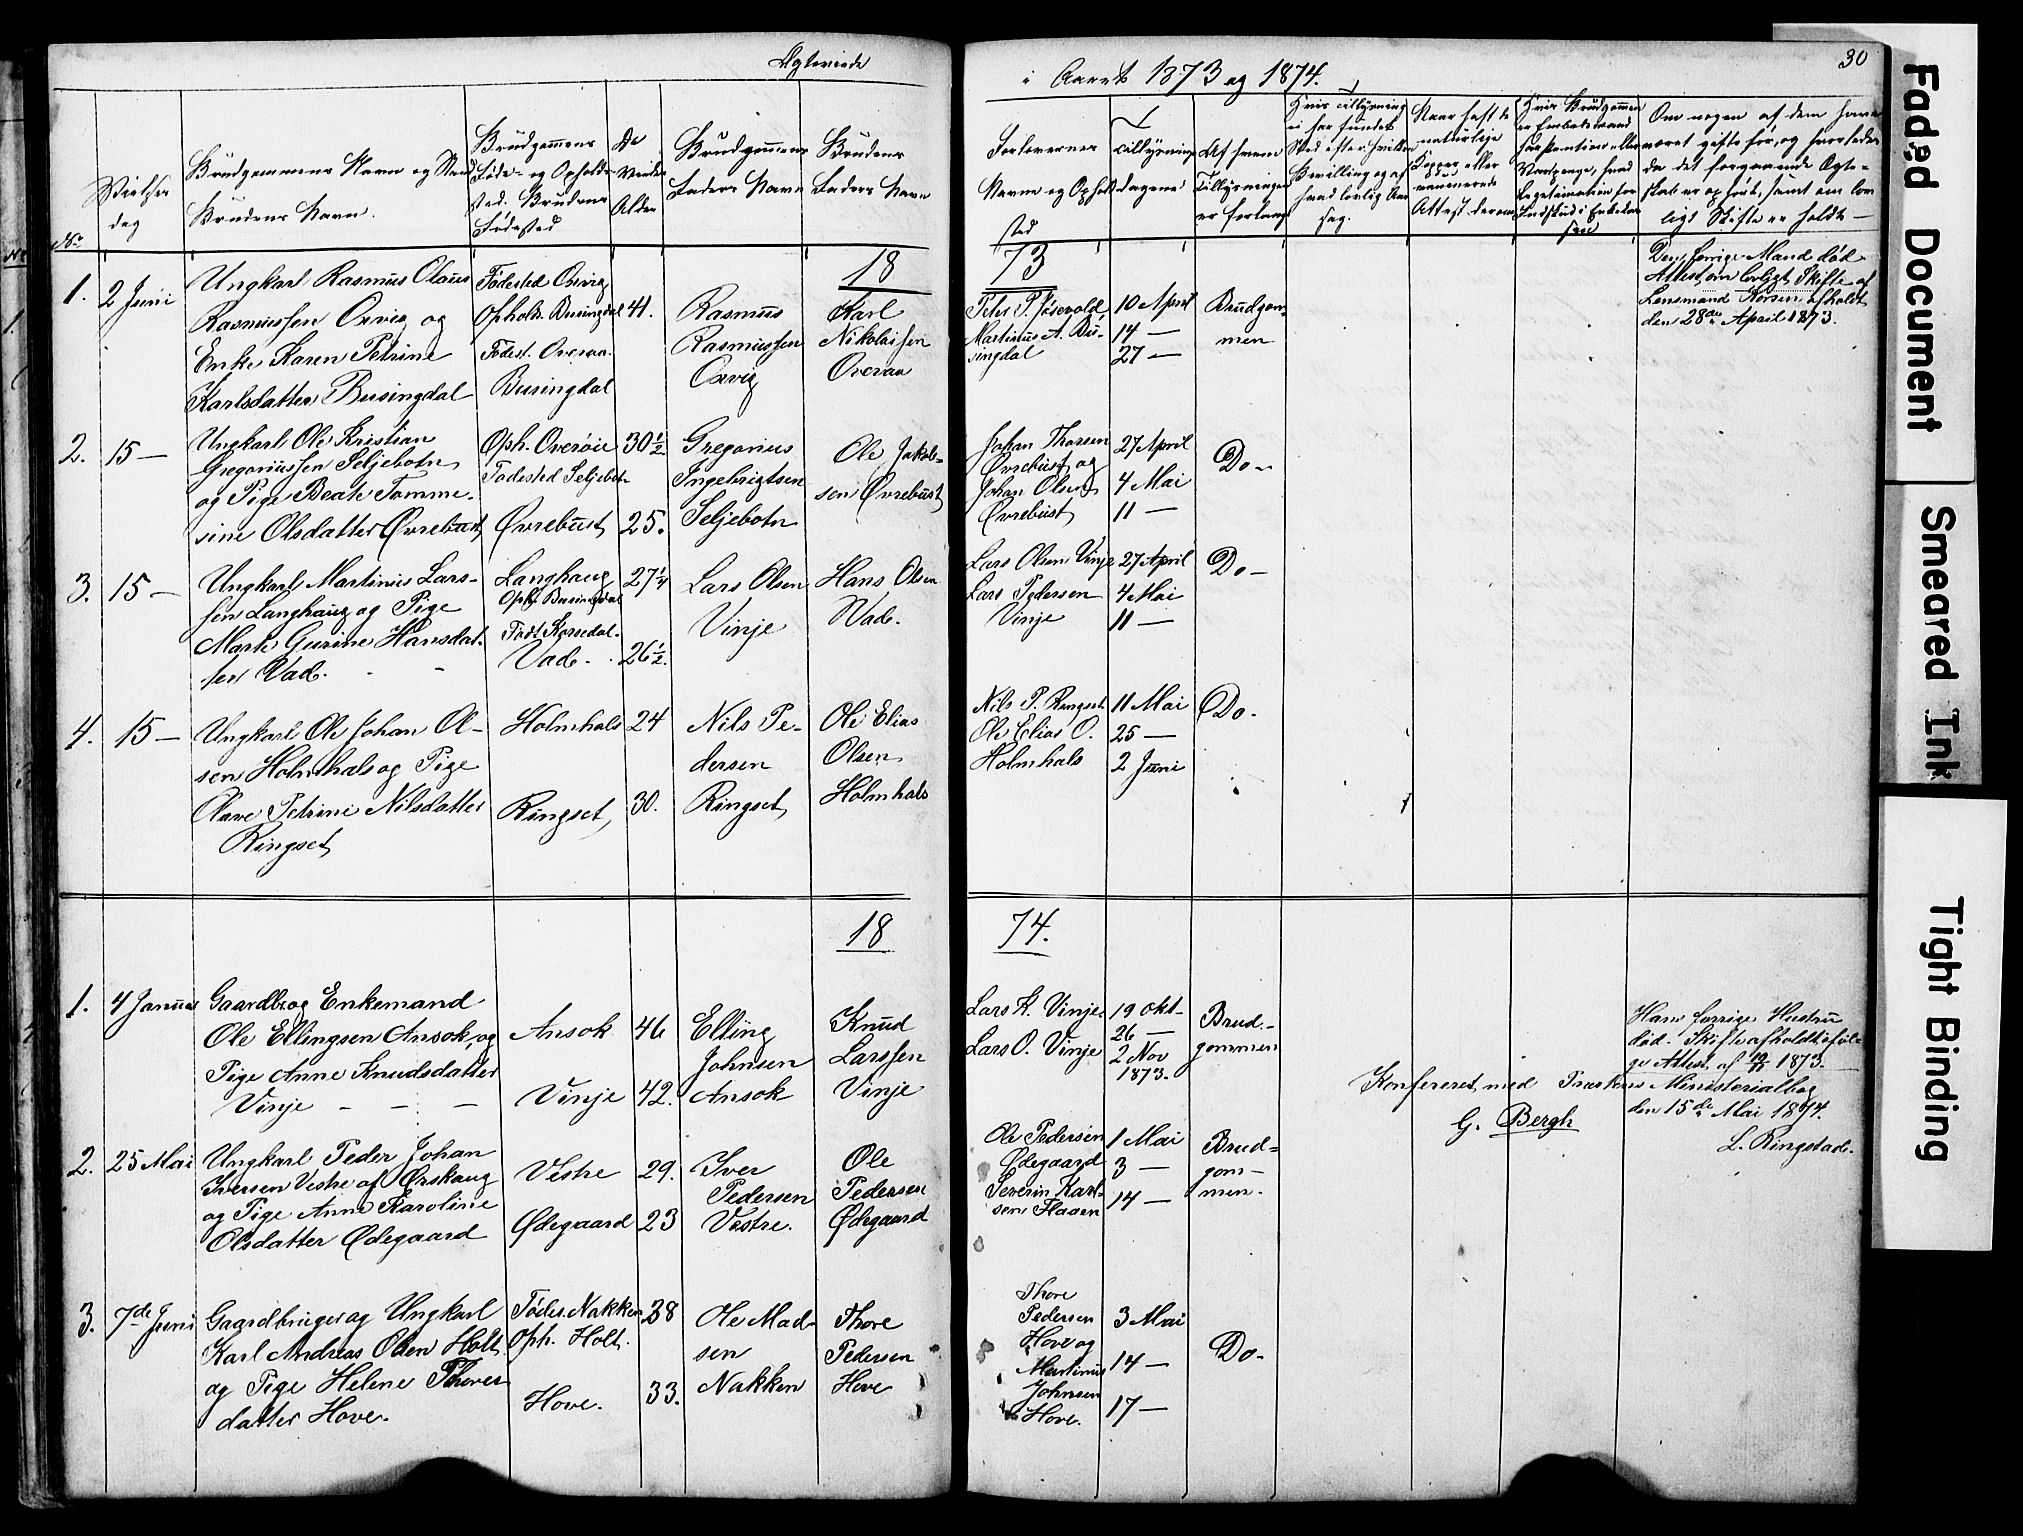 Ægteviede
i Aaret 1873 og 1874.
30
No
Vielses
dag
Brudgommens Navn og Stand
Brudens Navn.
Brudgommens
Føde- og Opholds-
sted. Brudens
Fødested
De
Viedes
Alder
Brudgommens
Faders Navn
Brudens
Faders Navn
Forlovernes
Navne og Ophold-
sted
Tillysnings-
dagene
Af hvem
Tillysningen
er forlangt
Hvis Tillysning
ei har fundet
Sted efter hvilken
Bevilling og af
hvad lovlig Aar-
sag.
Naar havt de
naturlige
Kopper eller
vaccinerede
Attest derom
Hvis Brudgommen
er Embedsmand
Legitimation for
Indskud i Enkekas-
sen
Om nogen af dem have
været gifte før, og hvorledes
da det forgaaende Ægte-
skab er ophørt, samt om lov
ligt Skifte er holdt—
1873
1. 2 Juni
Ungkarl Rasmus Olaus
Rasmussen Orvig og
Enke Karen Petrine
Karlsdatter Busingdal
Fødested Orvig
Opholds. Busingdal
Fødest. Overaa.
Busingdal
41.
Rasmus
Rasmussen
Orvig
Karl
Nikolaisen
Overaa
Peter P. Jøsevold
Martinus A. Bu-
singdal
10 April
14 —
27 —
Brudgom-
men
Den forrige Mand død
Attest om lovligt Skifte af
Lensmand Korsen afholdt
den 28de April 1873.
2. 15 —
Ungkarl Ole Kristian
Gregoriussen Seljebotn
og Pige Beate Tomme-
sine Olsdatter Øvrebust
Oph. Overøie
Fødested Seljebotn
Øvrebust
30½
25.
Gregorius
Ingebrigtsen
Seljebotn
Ole Jakob-
sen Øvrebust
Johan Thorsen
Øvrebust og
Johan Olsen
Øvrebust
27 April
4 Mai
11 —
Do —
3. 15 —
Ungkarl Martinus Lars-
sen Langhaug og Pige
Marte Gurine Hansdat-
ter Vad.
Langhaug
Oph. Busingdal
Født Korsedal.
Vad.
27¼
26½.
Lars Olsen
Vinje
Hans Olsen
Vad.
Lars Olsen Vinje
Lars Pedersen
Vinje
27 April
4 Mai
11 —
Do —
4. 15 —
Ungkarl Ole Johan Ol-
sen Holmhals og Pige
Olave Petrine Nilsdatter
Ringset
Holmhals
Ringset
24
30.
Nils Pe-
dersen
Ringset
Ole Elias
Olsen
Holmhals
Nils P. Ringset
Ole Elias O.
Holmhals
11 Mai
25 —
2 Juni
Do.
1874.
1. 4 Januar
Gaardbr. og Enkemand
Ole Ellingsen Ansok og
Pige Anne Knudsdatter
Vinje — — —
Ansok
Vinje
46
42.
Elling
Johnsen
Ansok
Knud
Larssen
Vinje
Lars K. Vinje
Lars O. Vinje
19 Okt-
26 —
2 Nov
1873.
Brud-
gommen
Hans forrige Hustru
død. Skifte afholdt ifølg-
ge Attest af 1873.
Konfereret med Præstens Ministerialbog
den 15de Mai 1874.
G. Bergh
L. Ringstad.
2. 25 Mai
Ungkarl Peder Johan
Iversen Vestre af Ørskaug
og Pige Anne Karoline
Olsdatter Ødegaard
Vestre
Ødegaard
29.
23
Iver
Pedersen
Vestre.
Ole
Pedersen
Ødegaard
Ole Pedersen
Ødegaard
Severin Karl-
sen Haaen
1 Mai
3 —
14 —
Brud-
gom-
men.
3. 7de Juni
Gaardbruger og Ungkarl
Karl Andreas Olsen Holt
og Pige Helene Thores
datter Hove.
Fødes. Nakken
Oph. Holt.
Hove.
38
33.
Ole Mad-
sen
Nakken
Thore
Pedersen
Hove
Thore
Pedersen
Hove og
Martinus
Johnsen
Hove.
3 Mai
14 —
17 —
Do —
Faded Document
Smeared Ink
Tight Binding